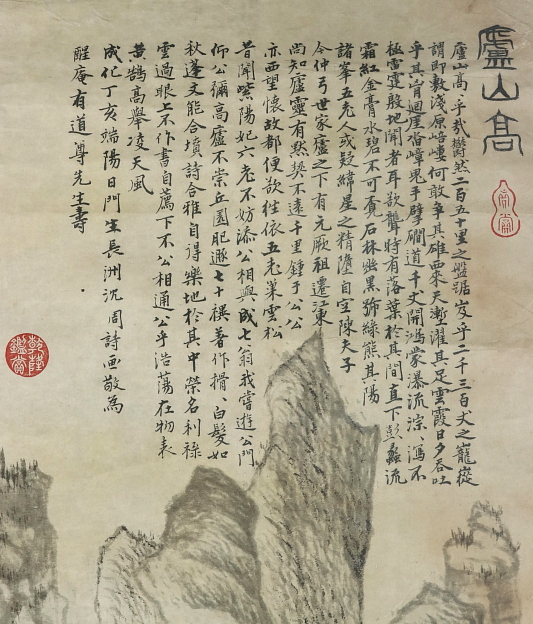 廬山高
廬山高〻乎哉鬱然二百五十里之盤踞岌乎二千三百丈之巃嵸
謂即敷淺原培嶁何敢爭其雄西來天塹濯其足雲霞日夕吞吐
乎其胷迴崖沓嶂鬼手擘磵道千丈開鴻蒙瀑流淙〻瀉不
極雷霆殷地聞者耳欲聾時有落葉於其間直下彭蠡流
霜紅金膏水碧不可覓石林幽黑號綠熊其陽
諸峯五老人或疑緯星之精墮自空陳夫子
今仲弓世家廬之下有元厥祖遷江東
尚知廬靈有默契不遠千里鍾于公公
亦西望懷故都便欲往依五老巢雲松
昔聞紫陽妃六老不妨添公相與成七翁我嘗遊公門
仰公彌高廬不崇丘園肥遯七十禩著作搰白髮如
秋蓬文能合墳詩合雅自得樂地於其中榮名利祿
雲過眼上不作書自薦下不公相通公乎浩蕩在物表
黄鵠高舉凌天風
成化丁亥端陽日門生長洲沈周詩画敬為
醒庵有道尊先生壽
乾隆鑑賞